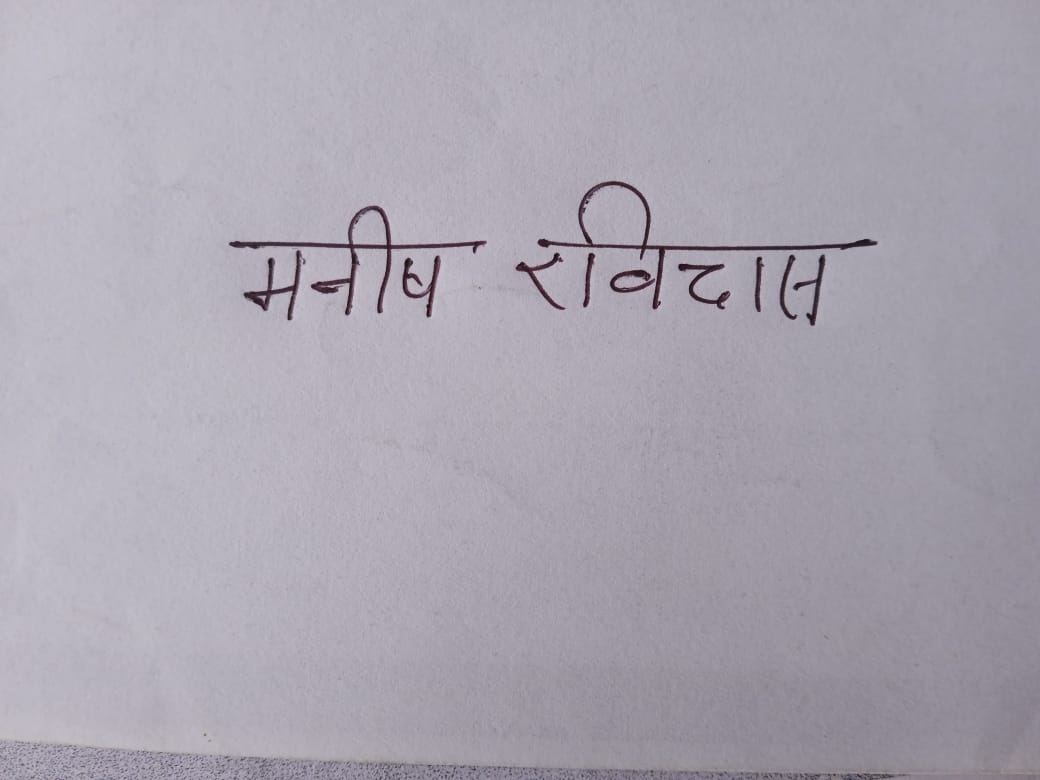 मनीष रविदास